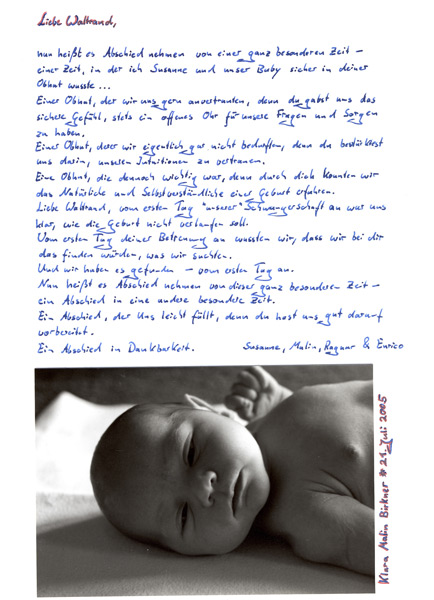 Liebe Waltraud,
nun heißt es Abschied nehmen von einer ganz besonderen Zeit –
einer Zeit, in der ich Susanne und unser Baby sicher in deiner
Obhut wusste ...
Einer Obhut, der wir uns gern anvertrauten, denn du gabst uns das
sichere Gefühl, stets ein offenes Ohr für unsere Fragen und Sorgen
zu haben.
Einer Obhut, derer wir eigentlich gar nicht bedurften, denn du bestärktest
uns darin, unseren Intuitionen zu vertrauen.
Eine Obhut, die dennoch wichtig war, denn durch dich konnten wir
das Natürliche und Selbstverständliche einer Geburt erfahren.
Liebe Waltraud, vom ersten Tag "unserer" Schwangerschaft an war uns
klar, wie die Geburt nicht verlaufen soll.
Vom ersten Tag deiner Betreuung an wussten wir, dass wir bei dir
das finden würden, was wir suchten.
Und wir haben es gefunden – vom ersten Tag an.
Nun heißt es Abschied nehmen von dieser ganz besonderen Zeit –
ein Abschied in eine andere besondere Zeit.
Ein Abschied, der uns leicht fällt, denn du hast uns gut darauf
vorbereitet.
Ein Abschied in Dankbarkeit. Susanne, Malin, Ragnar & Enrico
Klara Malin Birkner * 21. Juli 2005